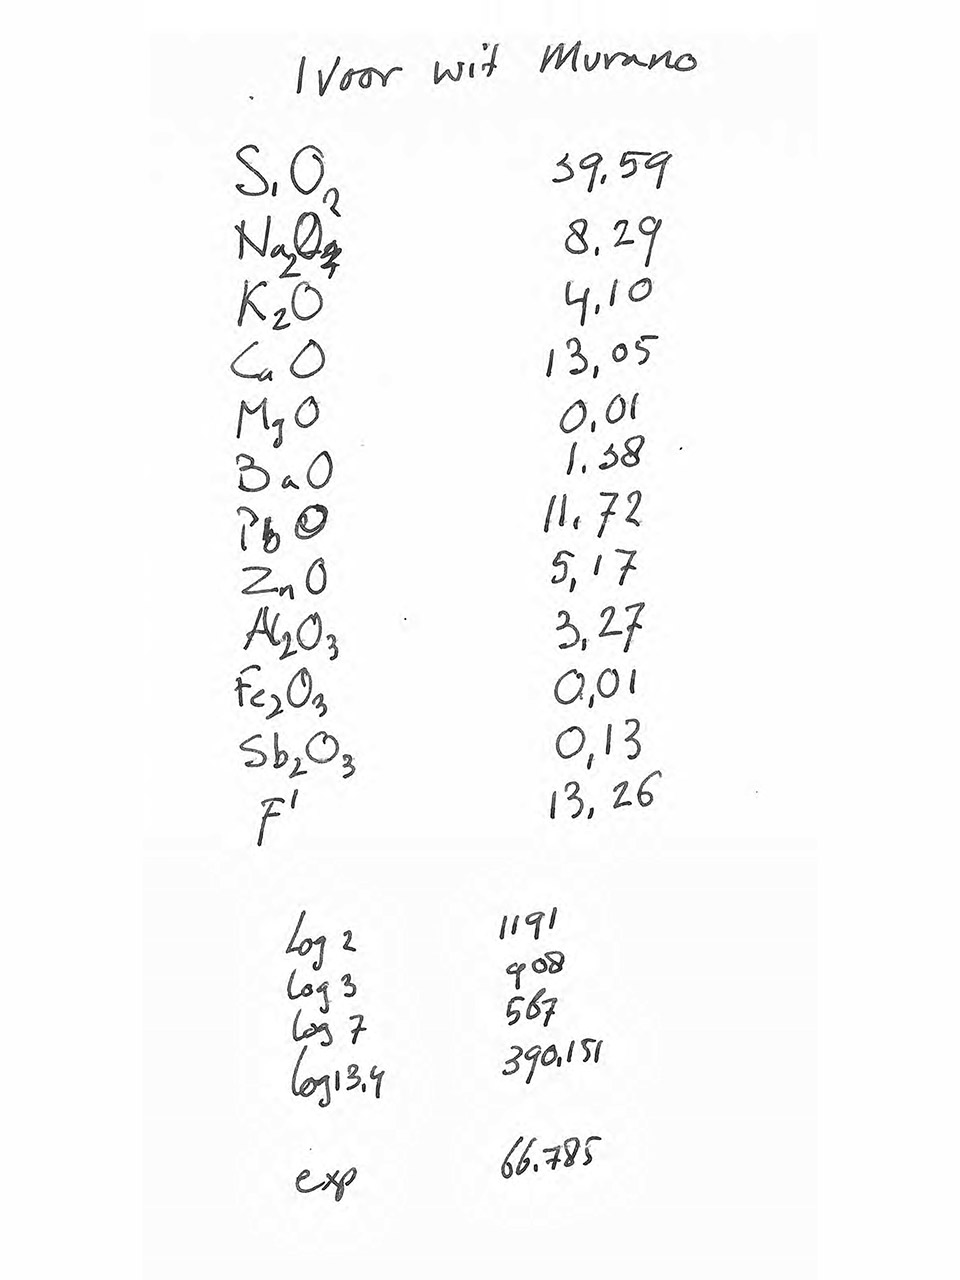 Ivoor wit Murano
SiO2 39.59
Na2O 8.29
K2O 4,10
CaO 13,05
MgO 0,01
BaO 1.38
PbO 11.72
ZnO 5,17
Al2O3 3,27
Fe2O3 0,01
Sb2O3 0,13
F' 13,26
Log 2 1191
Log 3 908
Log 7 567
Log 13,4 390,151
exp 66.785